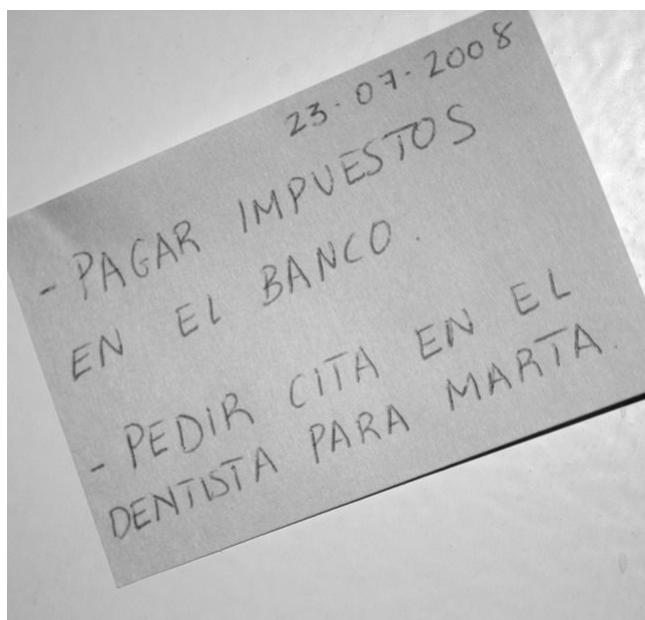 23-07-2008
- PAGAR IMPUESTOS
EN EL BANCO.
- PEDIR CITA EN EL
DENTISTA PARA MARTA.